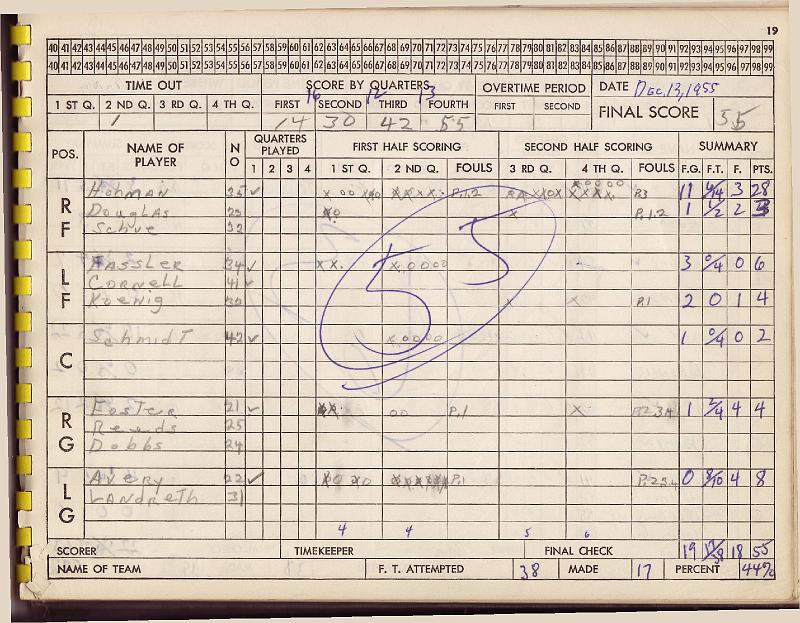 19
40 41 42 43 44 45 46 47 48 49 50 51 52 53 54 55 56 57 58 59 60 61 62 63 64 65 66 67 68 69 70 71 72 73 74 75 76 77 78 79 80 81 82 83 84 85 86 87 88 89 90 91 92 93 94 95 96 97 98 99
40 41 42 43 44 45 46 47 48 49 50 51 52 53 54 55 56 57 58 59 60 61 62 63 64 65 66 67 68 69 70 71 72 73 74 75 76 77 78 79 80 81 82 83 84 85 86 87 88 89 90 91 92 93 94 95 96 97 98 99
TIME OUT SCORE BY QUARTERS OVERTIME PERIOD DATE Dec. 13, 1955
16 12 13
1 ST Q. 2 ND Q. 3 RD Q. 4 TH Q. FIRST SECOND THIRD FOURTH FIRST SECOND FINAL SCORE 55
1 14 30 42 55
POS. NAME OF PLAYER NO QUARTERS PLAYED FIRST HALF SCORING SECOND HALF SCORING SUMMARY
1 2 3 4 1 ST Q. 2 ND Q. FOULS 3 RD Q. 4 TH Q. FOULS F.G. F.T. F. PTS.
RF Hohman 35 P.1.2 P3 11 6/14 3 28
Douglas P.1.2 1 1/2 2 3
Schue 32
LF Hassler 34 3 0/4 0 6
Cornell 41
Koenig 30 P.1 2 0 1 4
55
C Schmidt 42 1 0/4 0 2
RG Foster 21 P.1 1 2/4 4 4
25
Dobbs 24
LG Avery 22 P.1 P.2.3.4 0 8/10 4 8
Landreth 31
4 4 5 6
SCORER TIMEKEEPER FINAL CHECK 19 17/38 18 55
NAME OF TEAM F. T. ATTEMPTED 38 MADE 17 PERCENT 44%